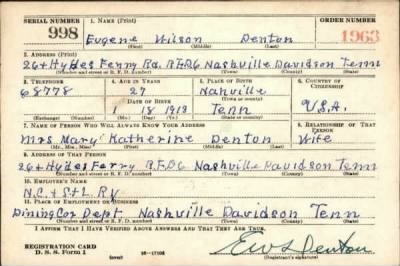 SERIAL NUMBER 1. NAME (Print) ORDER NUMBER
998 Eugene Wilson Denton 1963
(First) (Middle) (Last)
2. ADDRESS (Print)
26+ Hydes Ferry Rd. R.F.D.6 Nashville Davidson Tenn
(Number and street or R. F. D. number) (Town) (County) (State)
3. TELEPHONE 4. AGE IN YEARS 5. PLACE OF BIRTH 6. COUNTRY OF CITIZENSHIP
68778 27 Nahville
DATE OF BIRTH (Town or county)
1 18 1913 Tenn U.S.A.
(Exchange) (Number) (Mo.) (Day) (Yr.) (State or country)
7. NAME OF PERSON WHO WILL ALWAYS KNOW YOUR ADDRESS 8. RELATIONSHIP OF THAT PERSON
Mrs Mary Katherine Denton Wife
(Mr., Mrs., Miss) (First) (Middle) (Last)
9. ADDRESS OF THAT PERSON
26+ Hydes Ferry R.F.D.6 Nashville Davidson Tenn
(Number and street or R. F. D. number) (Town) (County) (State)
10. EMPLOYER'S NAME
N.C. & St. L. Ry
11. PLACE OF EMPLOYMENT OR BUSINESS
Dining Car Dept Nashville Davidson Tenn
(Number and street or R. F. D. number) (Town) (County) (State)
I AFFIRM THAT I HAVE VERIFIED ABOVE ANSWERS AND THAT THEY ARE TRUE.
REGISTRATION CARD Denton
D. S. S. Form 1 (over) (Registrant's signature)